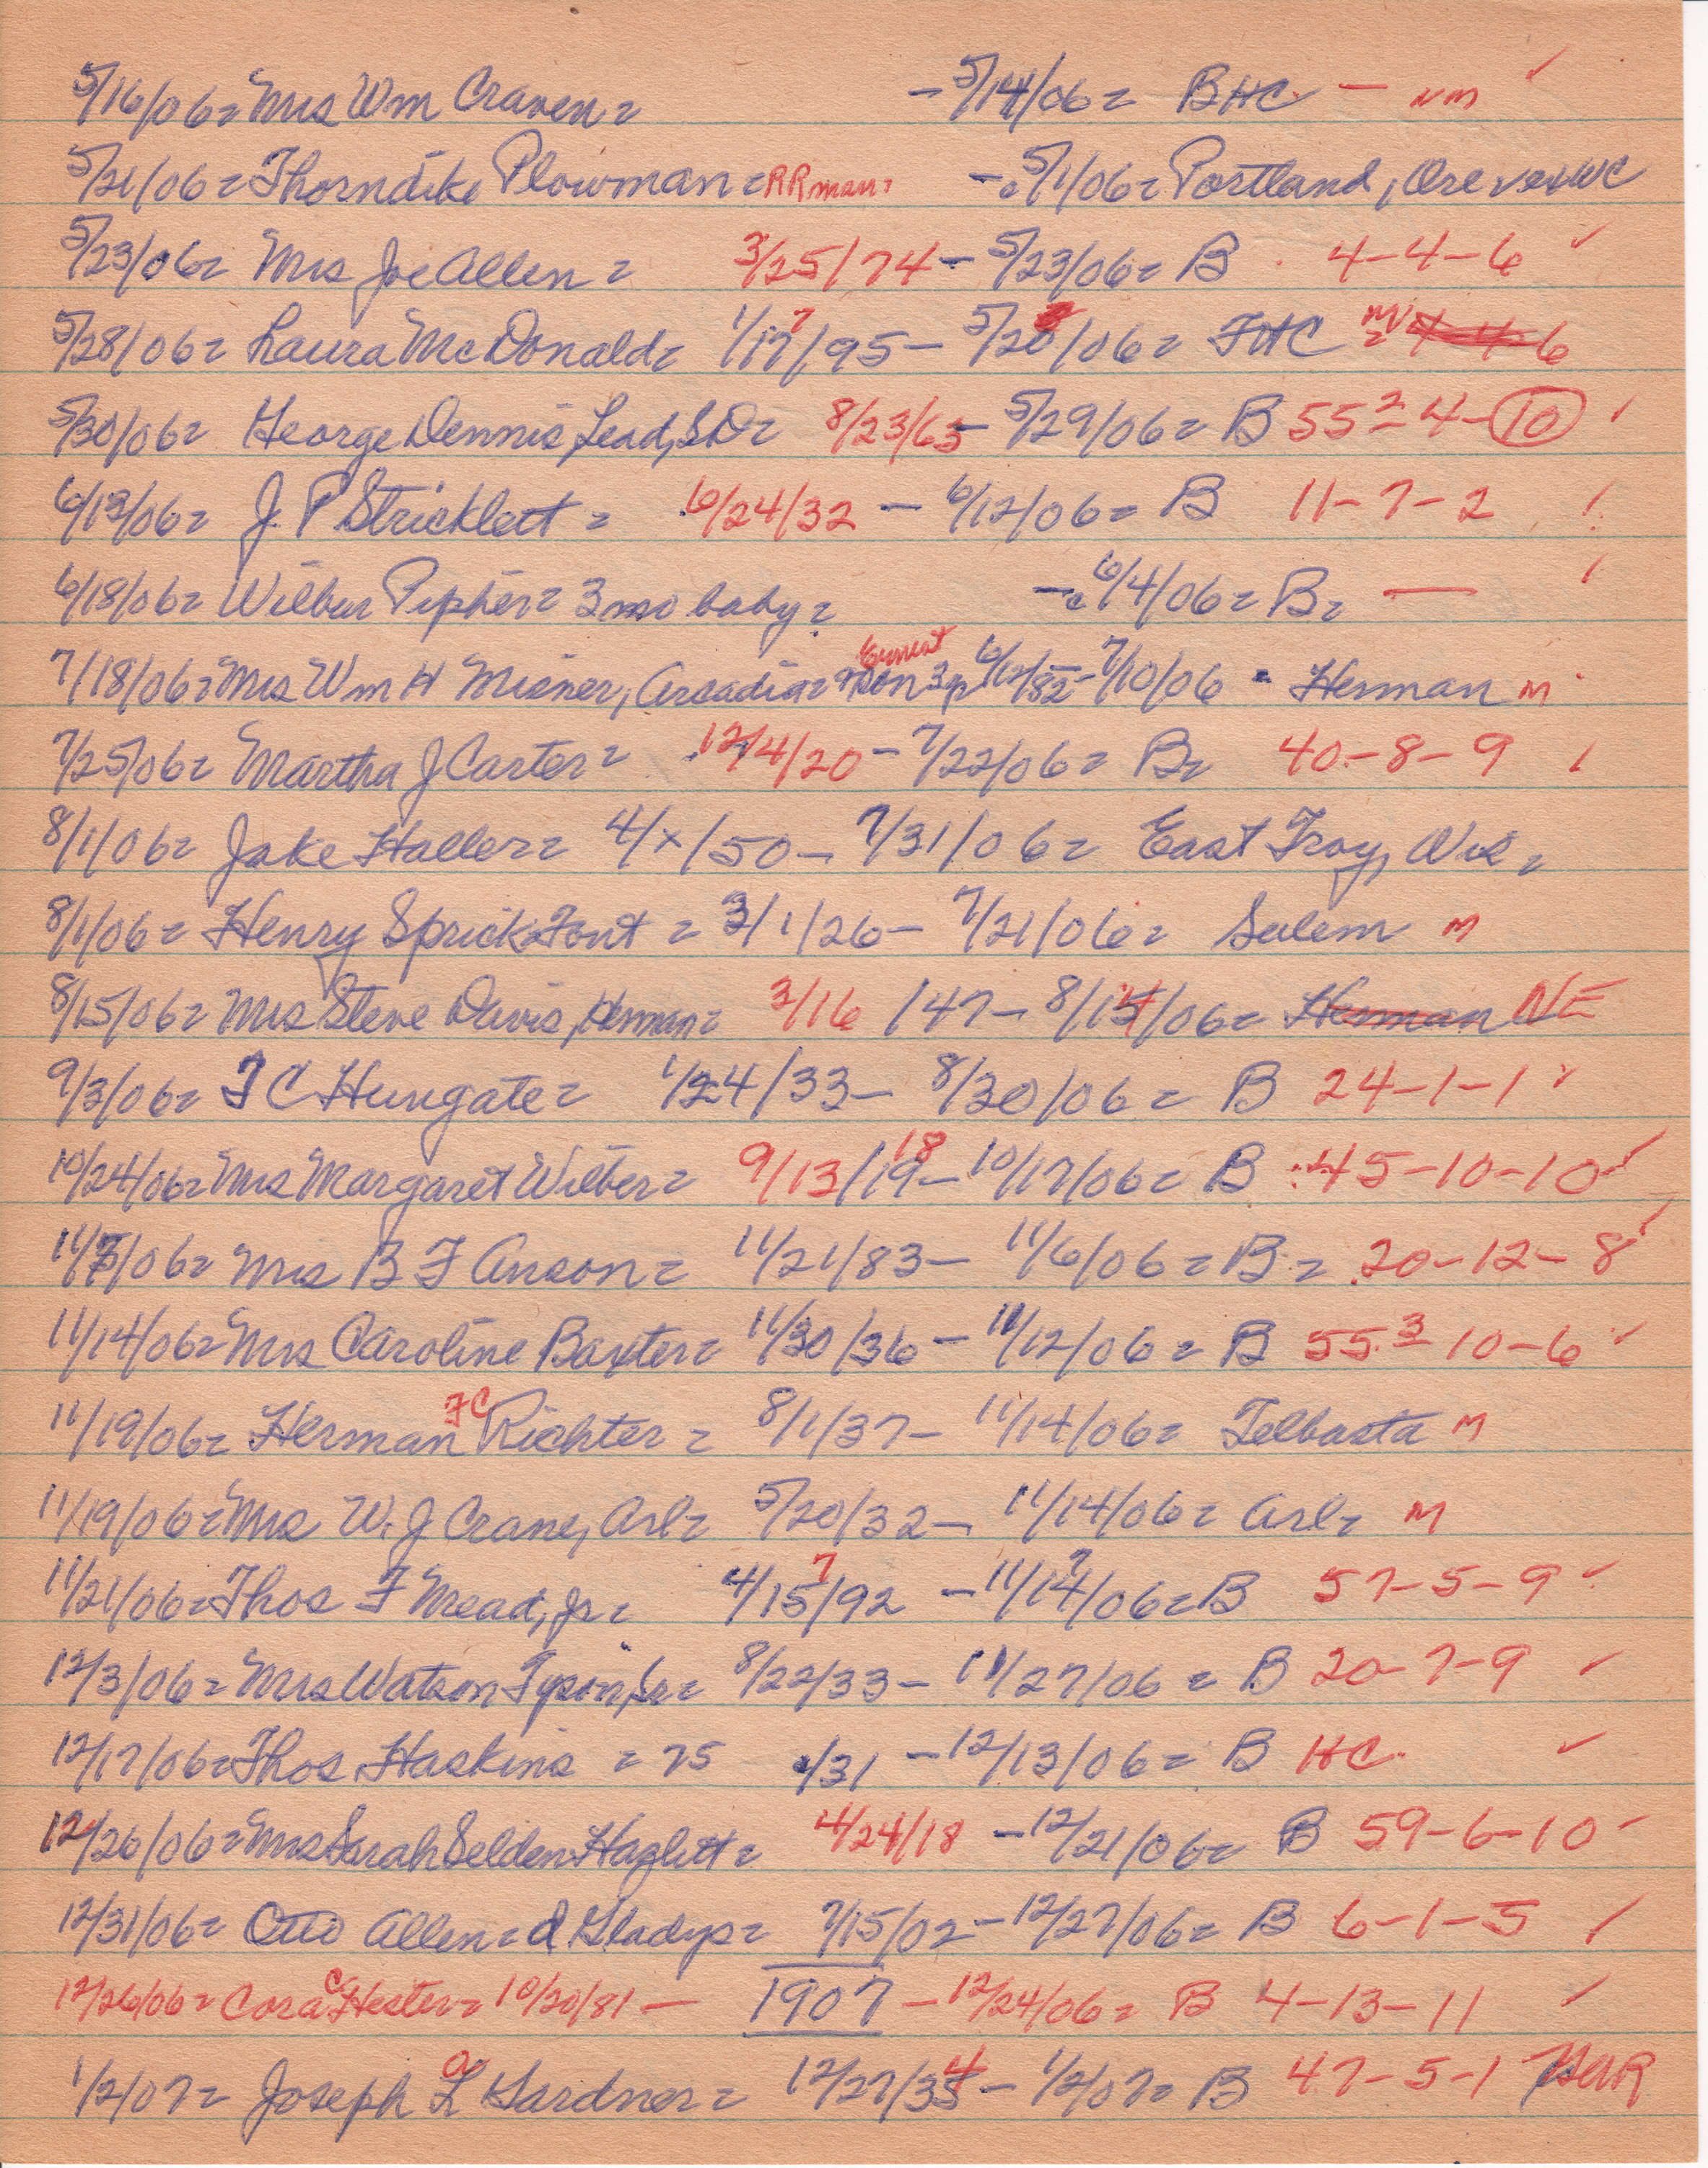 5/16/06= Mrs Wm Craven= - 5/14/06= BHC - NM ✓
5/21/06= Thorndike Plowman= RRman, - 5/1/06= Portland, Ore
5/23/06= Mrs Joe Allen= 3/25/74 - 5/23/06= B 4-4-6 ✓
5/28/06= Laura McDonald= 1/17/95 - 5/28/06= FHC
5/30/06= George Dennis, Lead, SD= 8/23/63 - 5/29/06= B 55 2 4-10 ✓
6/13/06= J. P Stricklett= 6/24/32 - 6/12/06= B 11-7-2
6/18/06= Wilbur Pipher= 3 mo baby= - 6/4/06= B= -
7/18/06= Mrs Wm H Misner, Arcadia= Ernest 6/12/82 - 7/10/06 = Herman M
7/25/06= Martha J Carter= 12/4/20 - 7/22/06= B= 40-8-9
8/1/06= Jake Haller= 4/x/50 - 7/31/06= East Troy, Wis=
8/1/06= Henry Sprick= Font = 3/1/26 - 7/21/06= Salem M
8/15/06= Mrs Steve Davis, Herman= 3/16/47 - 8/14/06= Herman NE
9/3/06= F C Hungate= 1/24/33 - 8/30/06= B 24-1-1 ✓
10/24/06= Mrs Margaret Wilber= 9/13/19 18 - 10/17/06= B 45-10-10 ✓
11/7/06= Mrs B F Anson= 11/21/83 - 11/6/06= B= 20-12-8 ✓
11/14/06= Mrs Caroline Baxter= 11/30/36 - 11/12/06= B 55 3 10-6 ✓
11/19/06= Herman FC Richter= 8/1/37 - 11/14/06= Telbasta M
11/19/06= Mrs W. J Crane, Arl= 5/20/32 - 11/14/06= Arl= M
11/21/06= Thos F Mead, Jr= 4/15/92 7 - 11/14/06= B 57-5-9 ✓
12/3/06= Mrs Watson Tyson, Sr= 8/22/33 - 11/27/06= B 20-7-9 ✓
12/17/06= Thos Haskins = 75 /31 - 12/13/06= B HC. ✓
12/26/06= Mrs Sarah Selden Hazlett= 4/24/18 - 12/21/06= B 59-6-10 ✓
12/31/06= Otto Allen= d Gladys= 7/15/02 - 12/27/06= B 6-1-5 ✓
12/26/06= Cora C Hester= 10/20/81 - 1907 - 12/24/06= B 4-13-11 ✓
1/2/07= Joseph L Gardner= 12/27/34 - 1/2/07= B 47-5-1